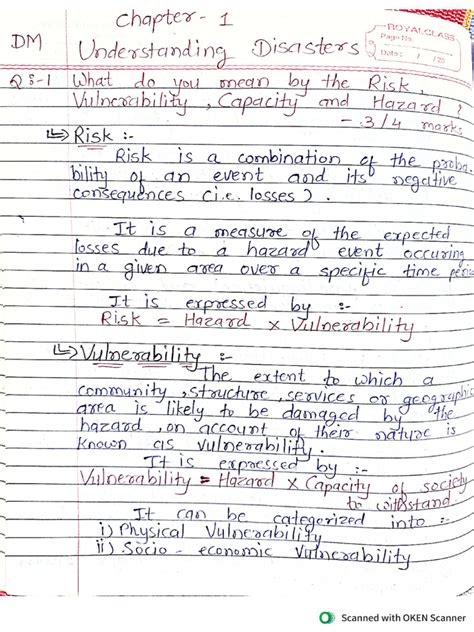 Chapter - 1
ROYAL CLASS
Page No.
DM
Understanding Disasters
Date : / / 20
Q:-1 What do you mean by the Risk,
Vulnerability, Capacity and Hazard ?
- 3/4 marks
Risk :-
Risk is a combination of the proba-
bility of an event and its negative
consequences (i.e. losses).
It is a measure of the expected
losses due to a hazard event occuring
in a given area over a specific time perio
It is expressed by :-
Risk = Hazard x Vulnerability
Vulnerability :-
The extent to which a
community, structure, services or geographic
area is likely to be damaged by the
hazard, on account of their nature is
known as vulnerability.
It is expressed by :-
Vulnerability = Hazard x Capacity of society
to withstand
It can be categorized into :-
i) Physical Vulnerability
ii) Socio - economic Vulnerability
Scanned with OKEN Scanner